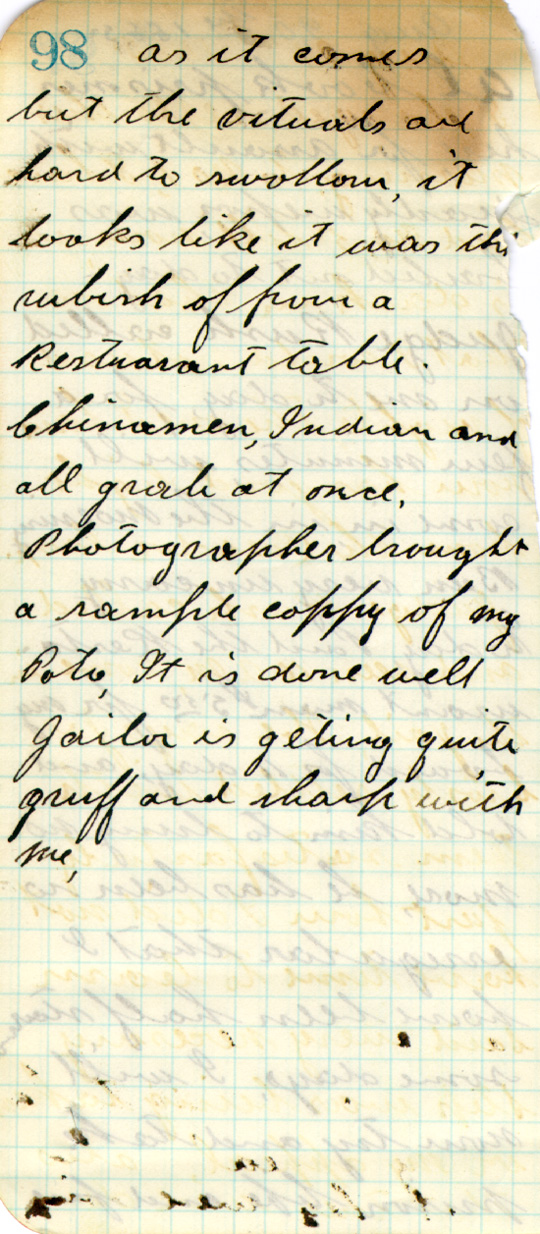 98 as it comes
but the vituals are
hard to swollow, it
looks like it was the
rubish of from a
Restuarant table.
Chinamen, Indian and
all grab at once.
Photographer brought
a sample coppy of my
Poto, It is done well
Jailor is geting quite
gruff and sharp with
me,